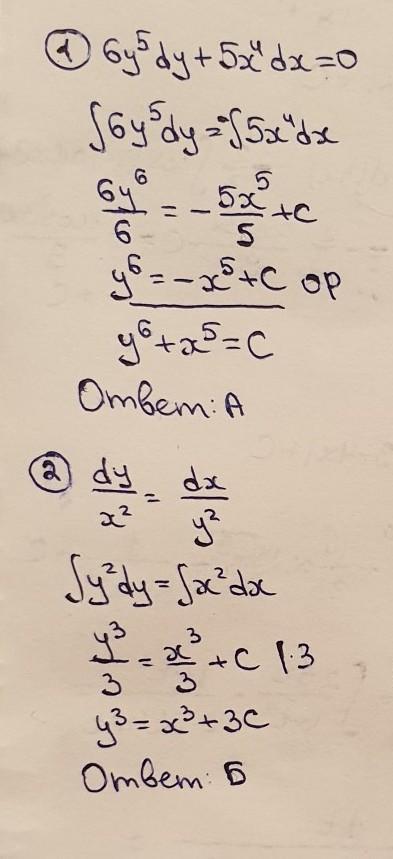 ① 6y⁵dy + 5x⁴dx = 0
∫6y⁵dy = -∫5x⁴dx
6y⁶/6 = -5x⁵/5 + C
y⁶ = -x⁵ + C ор
y⁶ + x⁵ = C
Ответ: А
② dy/x² = dx/y²
∫y²dy = ∫x²dx
y³/3 = x³/3 + C |·3
y³ = x³ + 3C
Ответ: Б